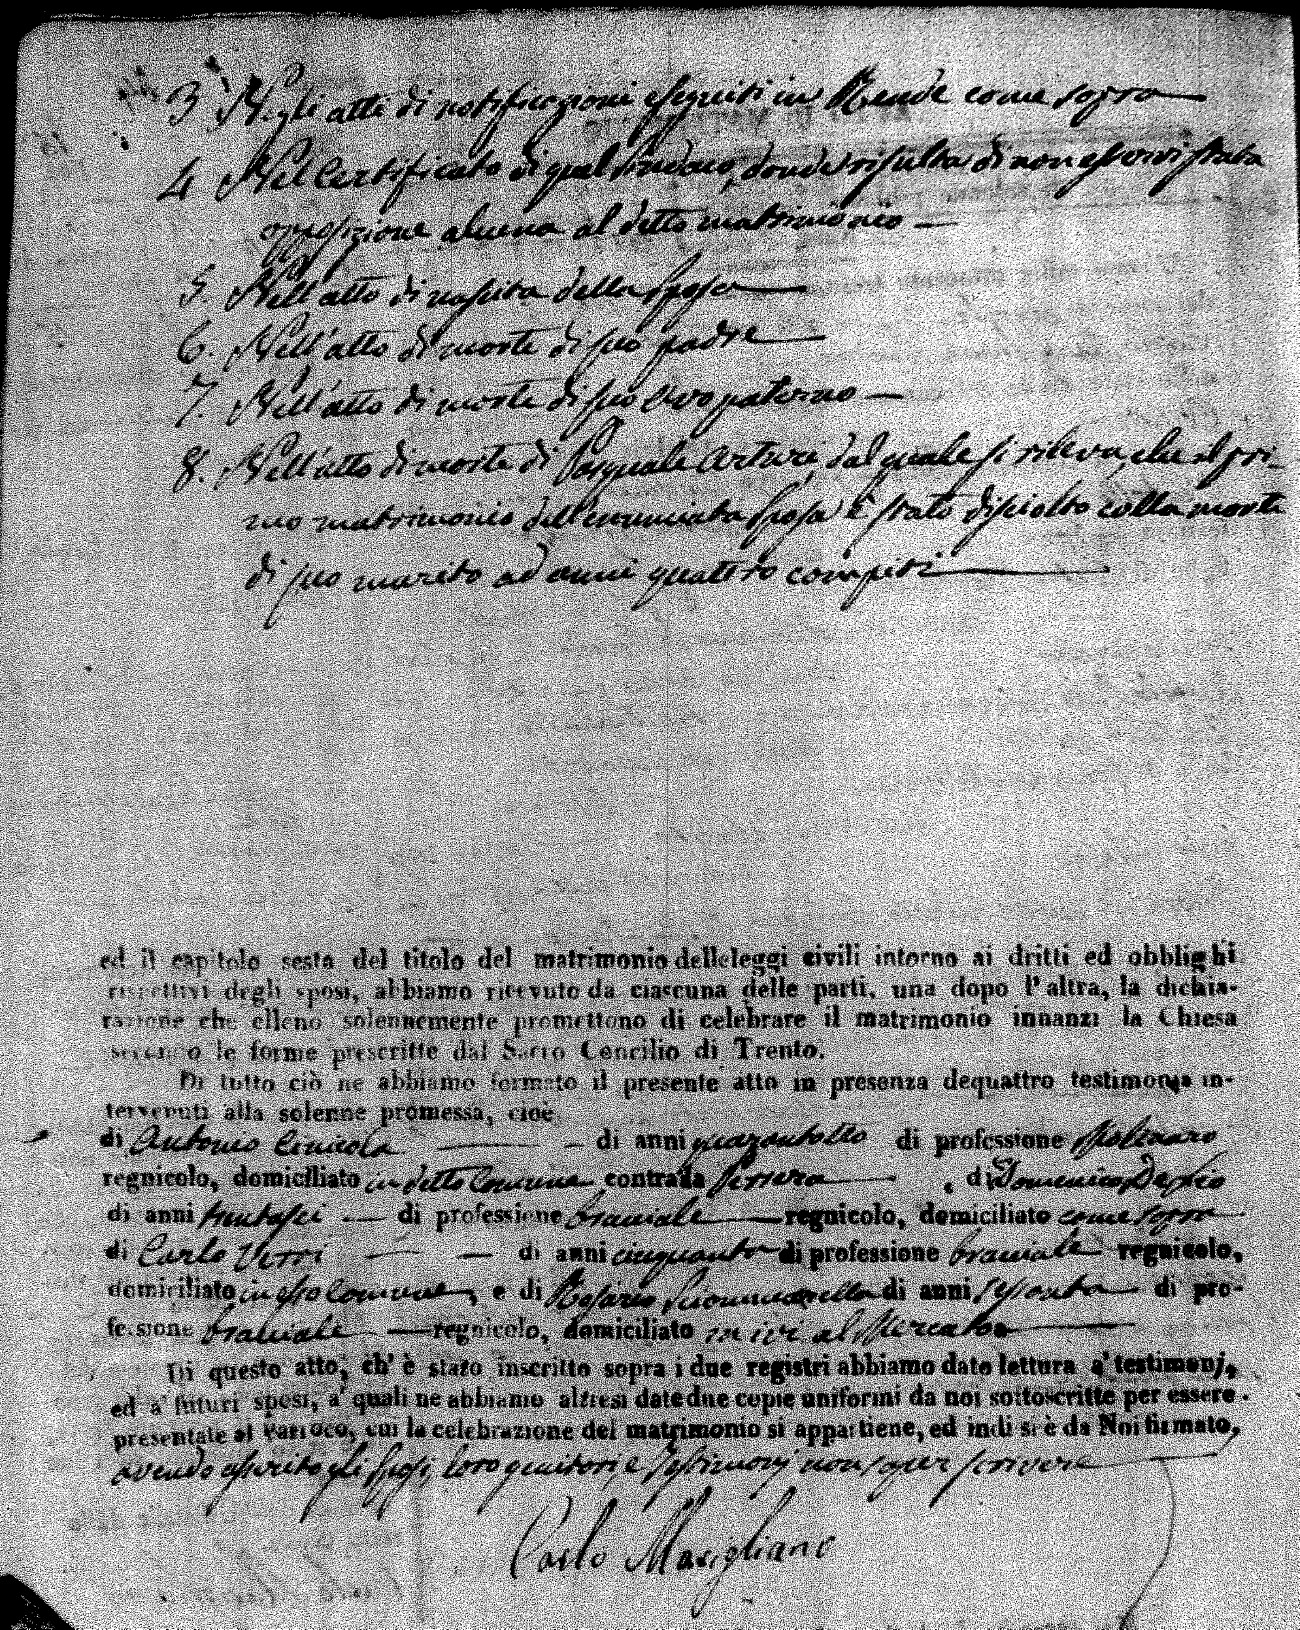 3 Negli atti di notificazioni eseguiti in Rende come sopra
4 Nel Certificato di quel Sindaco, donde risulta di non esservi stata
opposizione alcuna al detto matrimonio
5. Nell'atto di nascita della Sposa
6. Nell'atto di morte di suo padre
7. Nell'atto di morte di suo avo paterno
8. Nell'atto di morte di Pasquale Arturi, dal quale si rileva, che il pri-
mo matrimonio dell'enunciata Sposa è stato disciolto colla morte
di suo marito ad anni quattro compiti
ed il capitolo sesto del titolo del matrimonio delle leggi civili intorno ai dritti ed obblighi
rispettivi degli sposi, abbiamo ricevuto da ciascuna delle parti, una dopo l'altra, la dichia-
razione che elleno solennemente promettono di celebrare il matrimonio innanzi la Chiesa
secondo le forme prescritte dal Sacro Concilio di Trento.
Di tutto ciò ne abbiamo formato il presente atto in presenza de quattro testimonja in-
tervenuti alla solenne promessa, cioè
di Antonio di anni quarantotto di professione
regnicolo, domiciliato in detto Comune contrada , di Domenico
di anni trentasei di professione bracciale regnicolo, domiciliato come sopra
di Carlo Verri di anni cinquanta di professione bracciale regnicolo,
domiciliato in esso Comune, e di Rosario di anni sessanta di pro-
fessione bracciale regnicolo, domiciliato in ivi al Mercato
Di questo atto, ch'è stato inscritto sopra i due registri abbiamo dato lettura a' testimonj,
ed a' futuri sposi, a' quali ne abbiamo altresì date due copie uniformi da noi sottoscritte per essere
presentate al Parroco, cui la celebrazione del matrimonio si appartiene, ed indi si è da Noi firmato,
avendo asserito gli Sposi, loro genitori, e Testimonj non saper scrivere
Carlo Marigliano